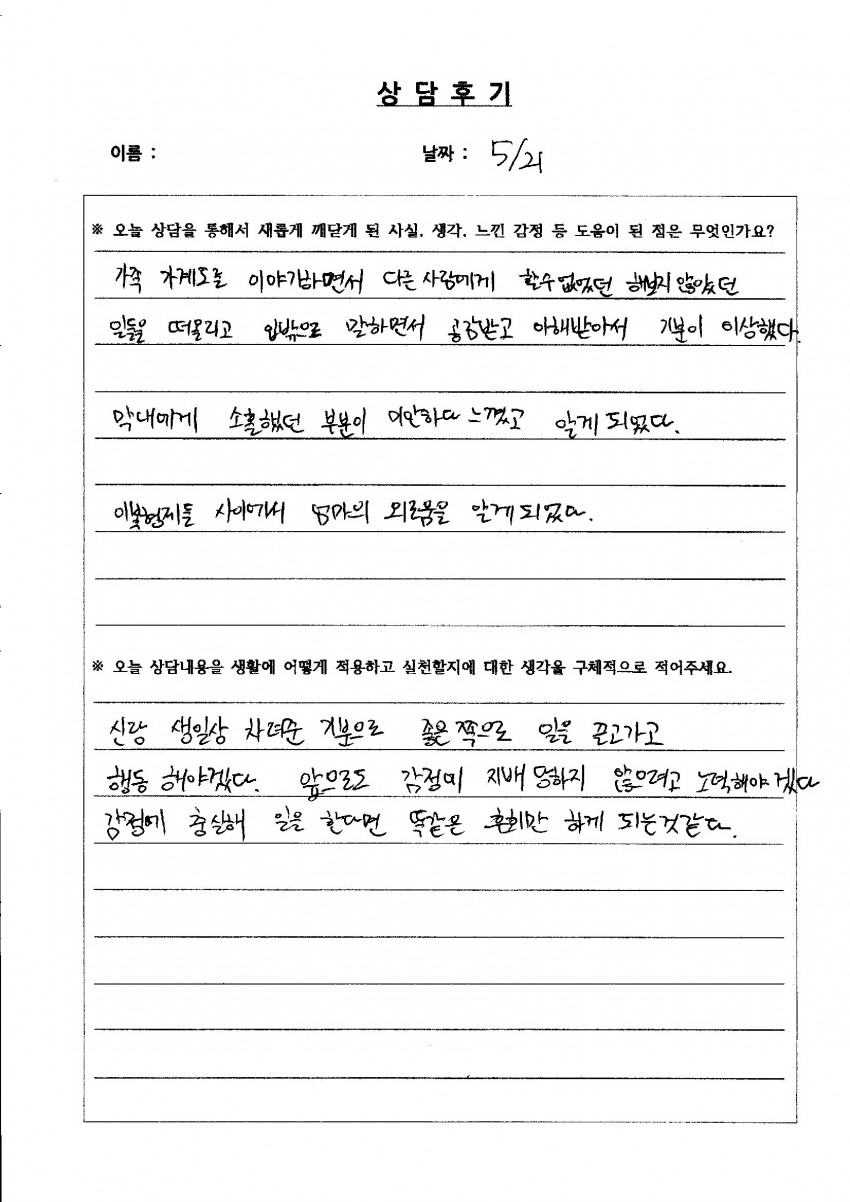 상 담 후 기
이름 : 날짜 : 5/21
※ 오늘 상담을 통해서 새롭게 깨닫게 된 사실, 생각, 느낀 감정 등 도움이 된 점은 무엇인가요?
가족 가계도를 이야기하면서 다른 사람에게 할수없었던 해보지않았던
일들을 떠올리고 입밖으로 말하면서 공감받고 이해받아서 기분이 이상했다.
막내에게 소홀했던 부분이 미안하다 느꼈고 알게되었다.
이복형제들 사이에서 엄마의 외로움을 알게되었다.
※ 오늘 상담내용을 생활에 어떻게 적용하고 실천할지에 대한 생각을 구체적으로 적어주세요.
신랑 생일상 차려준 기분으로 좋은쪽으로 일을 끌고가고
행동 해야겠다. 앞으로도 감정에 지배 당하지 않으려고 노력해야겠다
감정에 충실해 일을 한다면 똑같은 후회만 하게 되는것같다.